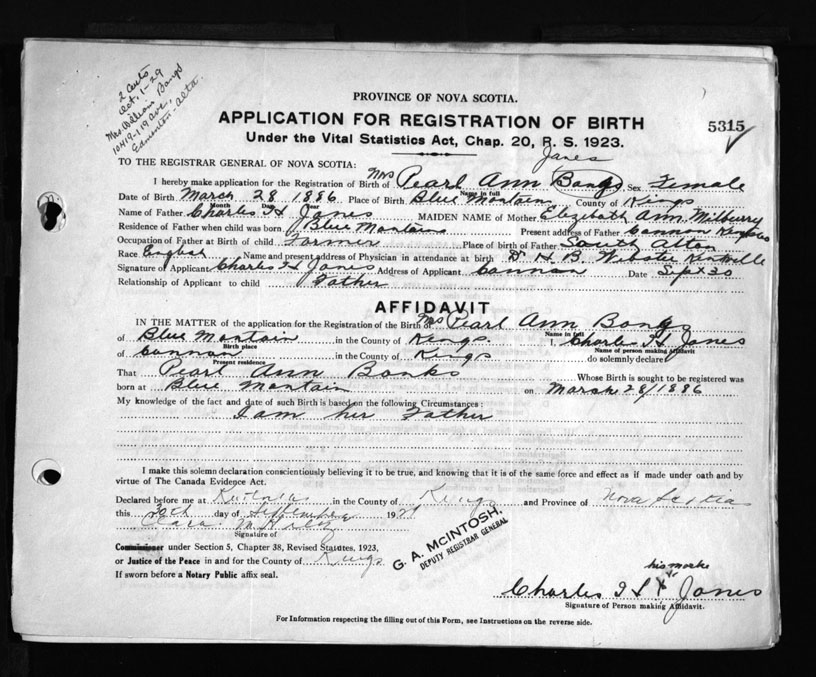 2 Cents
Oct. 1-29
Mrs. William Bangs
10419-119 Ave,
Edmonton-Alta.
PROVINCE OF NOVA SCOTIA.
APPLICATION FOR REGISTRATION OF BIRTH
5315
Under the Vital Statistics Act, Chap. 20, R. S. 1923.
TO THE REGISTRAR GENERAL OF NOVA SCOTIA:
Janes
I hereby make application for the Registration of Birth of Mrs Pearl Ann Bangs Sex Female
Name in full
Date of Birth March 28 1886 Place of Birth Blue Montain County of Kings
Month Day Year
Name of Father Charles H Jones MAIDEN NAME of Mother Elizibath Ann Milburry
Residence of Father when child was born Blue Montain Present address of Father Cannon Kings
Occupation of Father at Birth of child Farmer Place of birth of Father South Alton
Race Name and present address of Physician in attendance at birth Dr H. B. Webster Kentville
Signature of Applicant Charles H Jones Address of Applicant Cannan Date Sept 30
Relationship of Applicant to child Father
AFFIDAVIT
IN THE MATTER of the application for the Registration of the Birth of Mrs Pearl Ann Bongs
Name in full
of Blue Montain in the County of Kings. I, Charles H Jones
Birth place Name of person making Affidavit
of Cannan in the County of Kings do solemnly declare
Present residence
That Pearl Ann Bonks Whose Birth is sought to be registered was
born at Blue Montain on March 28/1886
My knowledge of the fact and date of such Birth is based on the following Circumstances:
I am her Father
I make this solemn declaration conscientiously believing it to be true, and knowing that it is of the same force and effect as if made under oath and by
virtue of The Canada Evidence Act.
Declared before me at in the County of Kings and Province of Nova Scotia
this 30th day of September 192
Clara M
Signature of
Commissioner under Section 5, Chapter 38, Revised Statutes, 1923,
or Justice of the Peace in and for the County of Kings
If sworn before a Notary Public affix seal.
G. A. McINTOSH,
DEPUTY REGISTRAR GENERAL
his marke
Charles H X Jones
Signature of Person making Affidavit.
For Information respecting the filling out of this Form, see Instructions on the reverse side.